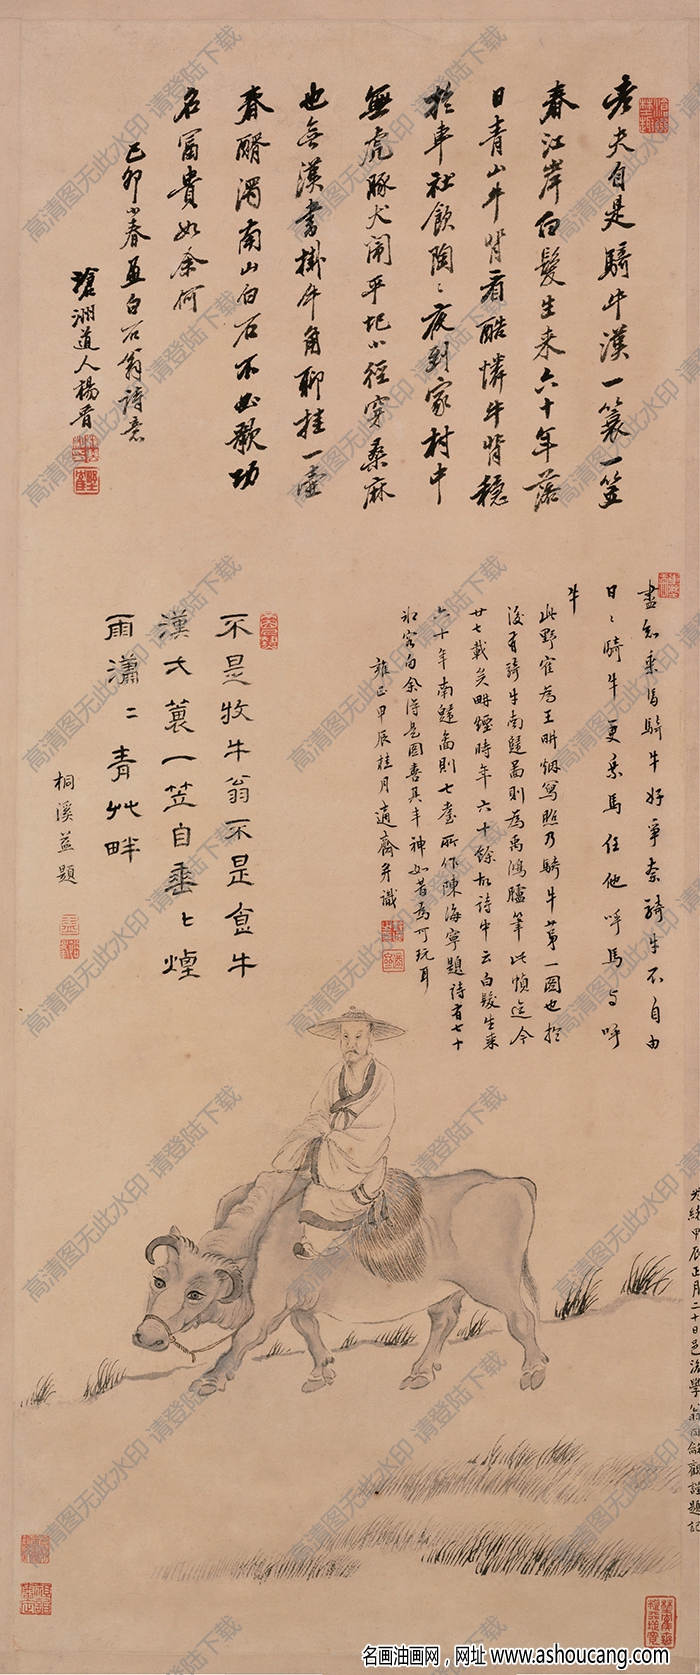 老夫自是騎牛漢一簑一笠
春江岸白髮生来六十年落
日青山牛背看酷憐牛背穩
於車社飲陶〻夜到家村中
無虎豚犬鬧平圯小徑穿桑麻
也無漢書掛牛角聊挂一壺
春醑濁南山白石不必歌功
名富貴如余何
己卯小春画白石翁詩意
滄洲道人楊晉
盡知乘馬騎牛好爭奈騎牛不自由
日〻騎牛更乘馬任他呼馬与呼
牛
此野崔為王畊烟寫照乃騎牛第一圖也於
後有騎牛南䢜啚則為禹鴻臚筆此幀迄今
廿七載矣畊煙時年六十餘故詩中云白髮生来
六十年南䢜啚則七耋所作陳海寧題詩有七十

雍正甲辰桂月適齋并識
不是牧牛翁不是飯牛
漢大蓑一笠自垂〻煙
雨瀟〻青艸畔
桐溪益題
光緒甲辰正月二十日邑後學翁同龢觀謹題記
高清图无此水印 请登陆下载
名画油画网，网址 www.ashoucang.com